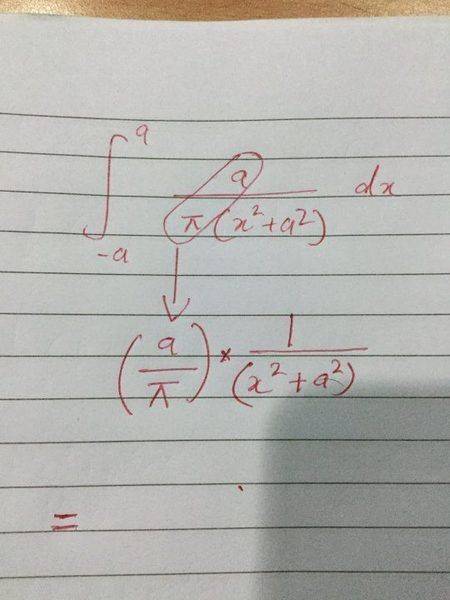 ∫_{-a}^{a} a / π(x²+a²) dx
(a/π) * 1/(x²+a²)
=